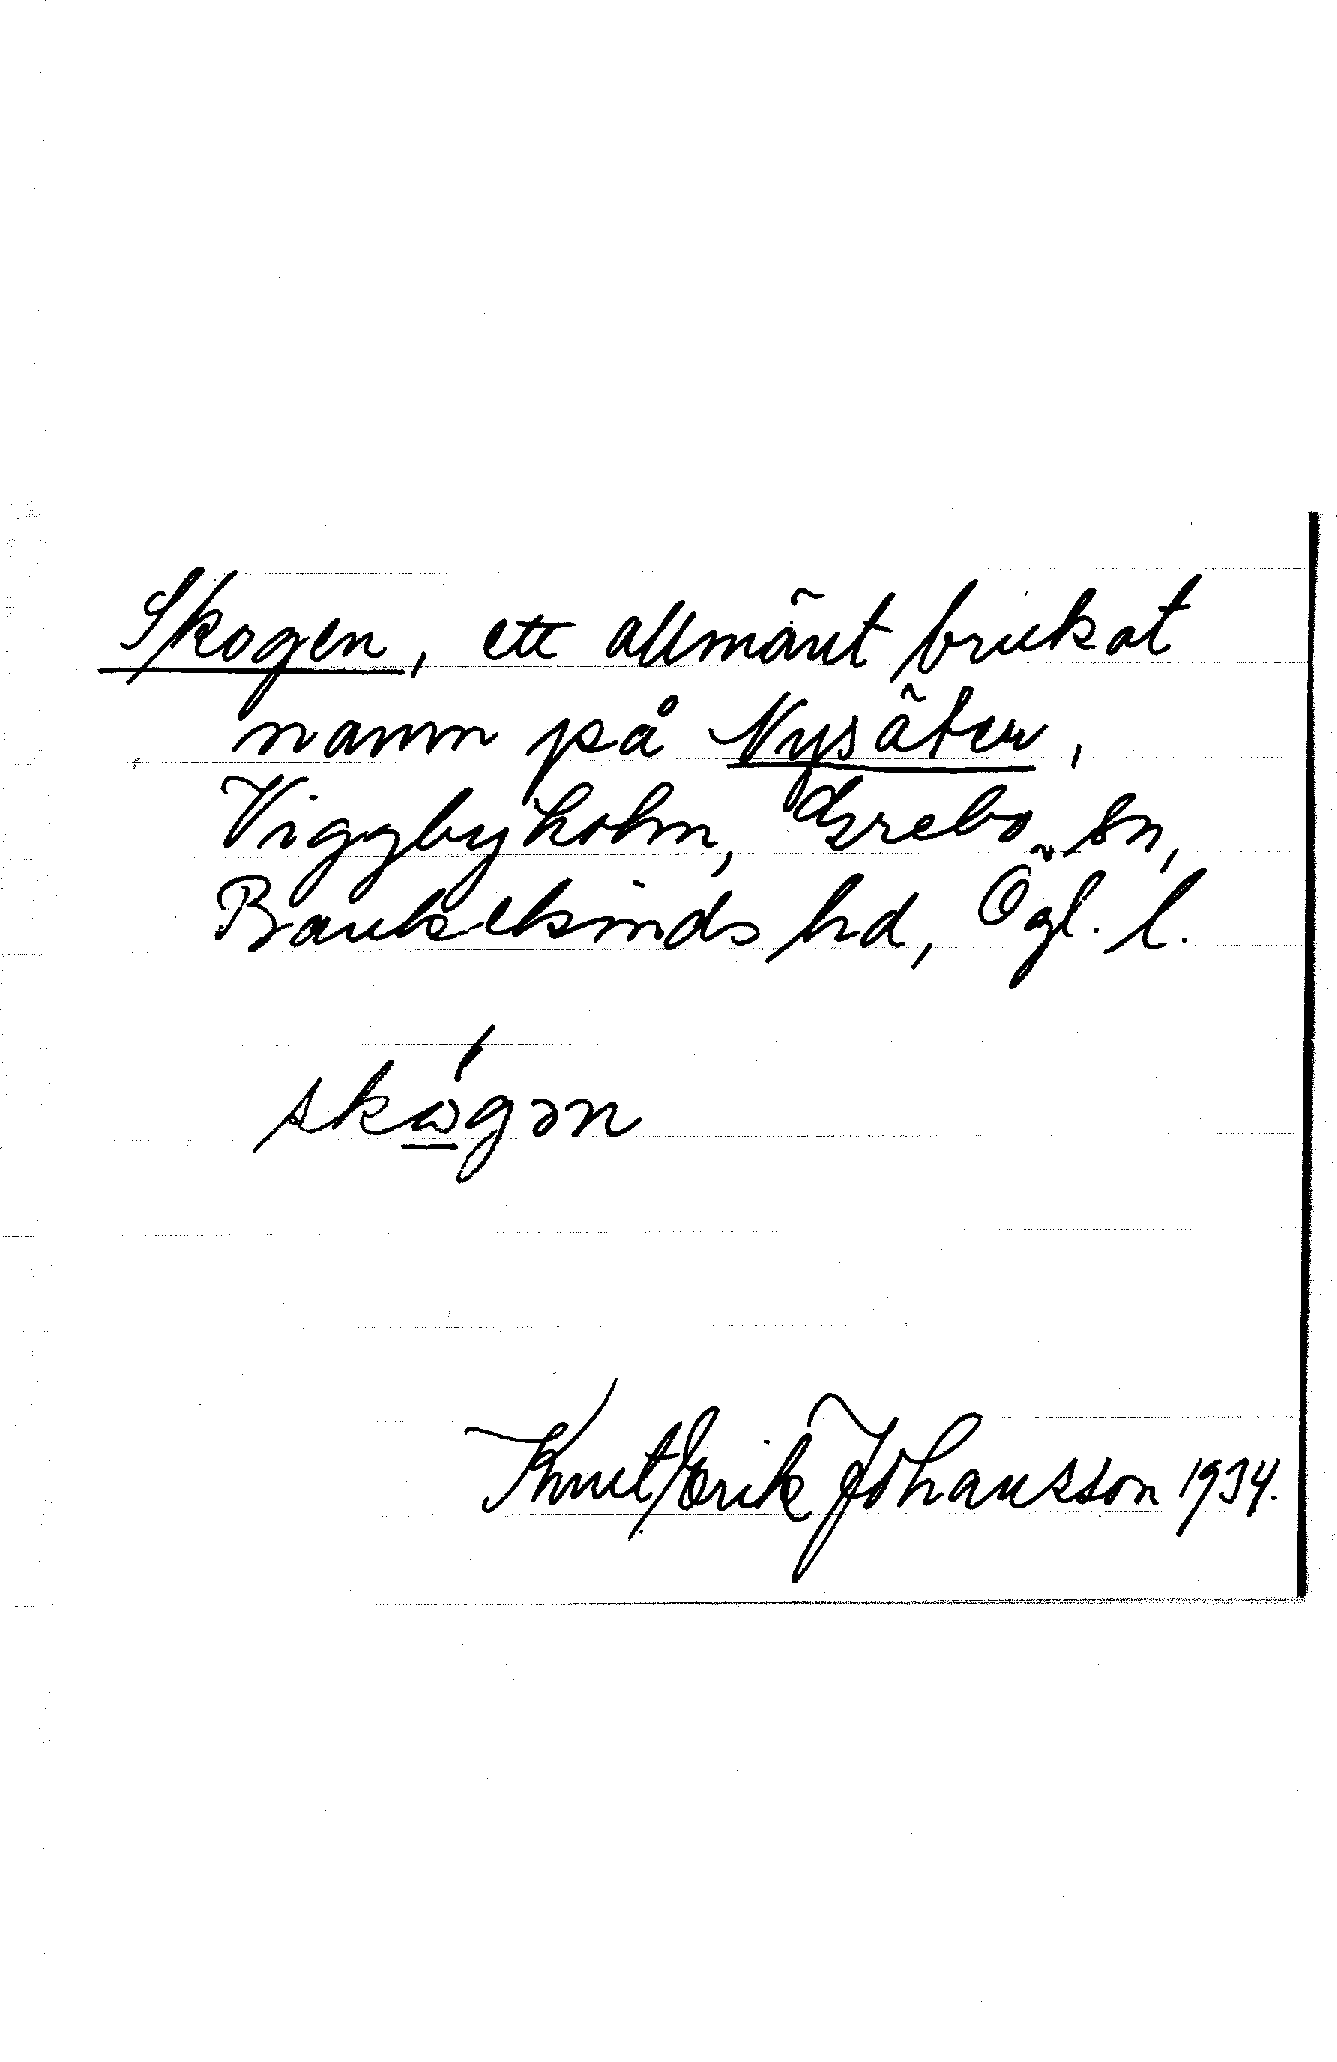 Skogen, ett allmänt brukat
namn på Nysäter,
Viggbyholm, Grebo sn,
Bankekinds hd, Ögl. l.
skώ̲gən
Knut Erik Johansson 1934.